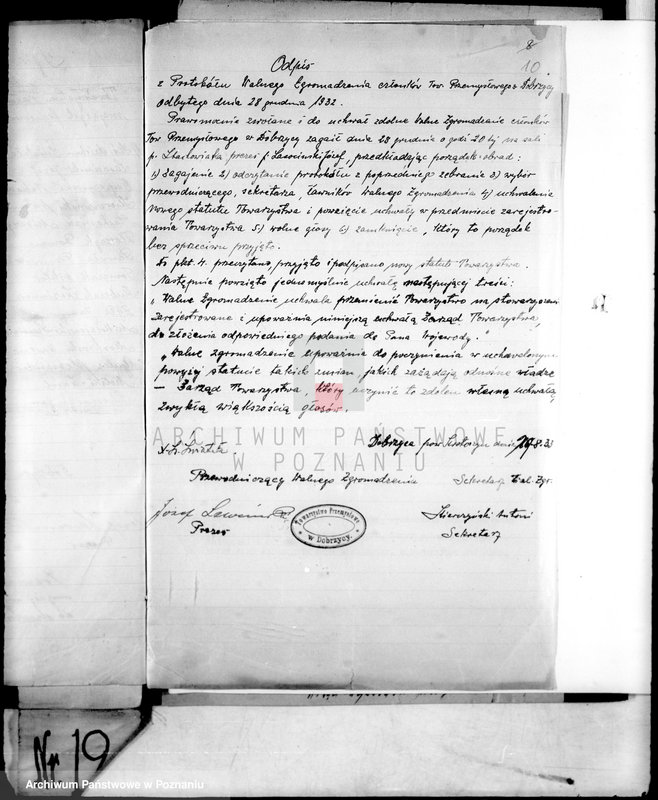 8
10
Odpis
z Protokółu Walnego Zgromadzenia członków Tow. Przemysłowego w Dobrzycy
odbytego dnia 28 grudnia 1932.
Prawomocnie zwołane i do uchwał zdolne Walne Zgromadzenie członków
Tow. Przemysłowego w Dobrzycy zagaił dnia 28 grudnia o godz 20 tej na sali
p. Stachowiaka prezes p. Ławciński Józef, przedkładając porządek obrad:
1) Zagajenie 2) odczytanie protokółu z poprzedniego zebrania 3) wybór
przewodniczącego, sekretarza, ławników Walnego Zgromadzenia 4) uchwalenie
nowego statutu Towarzystwa i powzięcie uchwały w przedmiocie zarejestro-
wania Towarzystwa 5) wolne głosy 6) zamknięcie, który to porządek
bez sprzeciwu przyjęto.
Do pkt. 4. przeczytano, przyjęto i podpisano nowy statut Towarzystwa.
Następnie powzięto jednomyślnie uchwałę następującej treści:
"Walne Zgromadzenie uchwala przemienić Towarzystwo na stowarzyszenie
zarejestrowane i upoważnia niniejszą uchwałą Zarząd Towarzystwa,
do złożenia odpowiedniego podania do Pana Wojewody.
"Walne zgromadzenie upoważnia do poczynienia w uchwalonym
powyżej statucie takich zmian jakich zażądają odnośne władze
— Zarząd Towarzystwa, który uczynić to zdolen własną uchwałą,
zwykłą większością głosów.
ARCHIWUM PAŃSTWOWE
W POZNANIU
Dobrzyca pow. Krotoszyn dnia 29.8.33
Przewodniczący Walnego Zgromadzenia
Sekretarz Wal. Zgr.
Józef
Prezes
Towarzystwo Przemysłowe
w Dobrzycy.
Antoni
Sekretarz
Nr 19
Archiwum Państwowe w Poznaniu